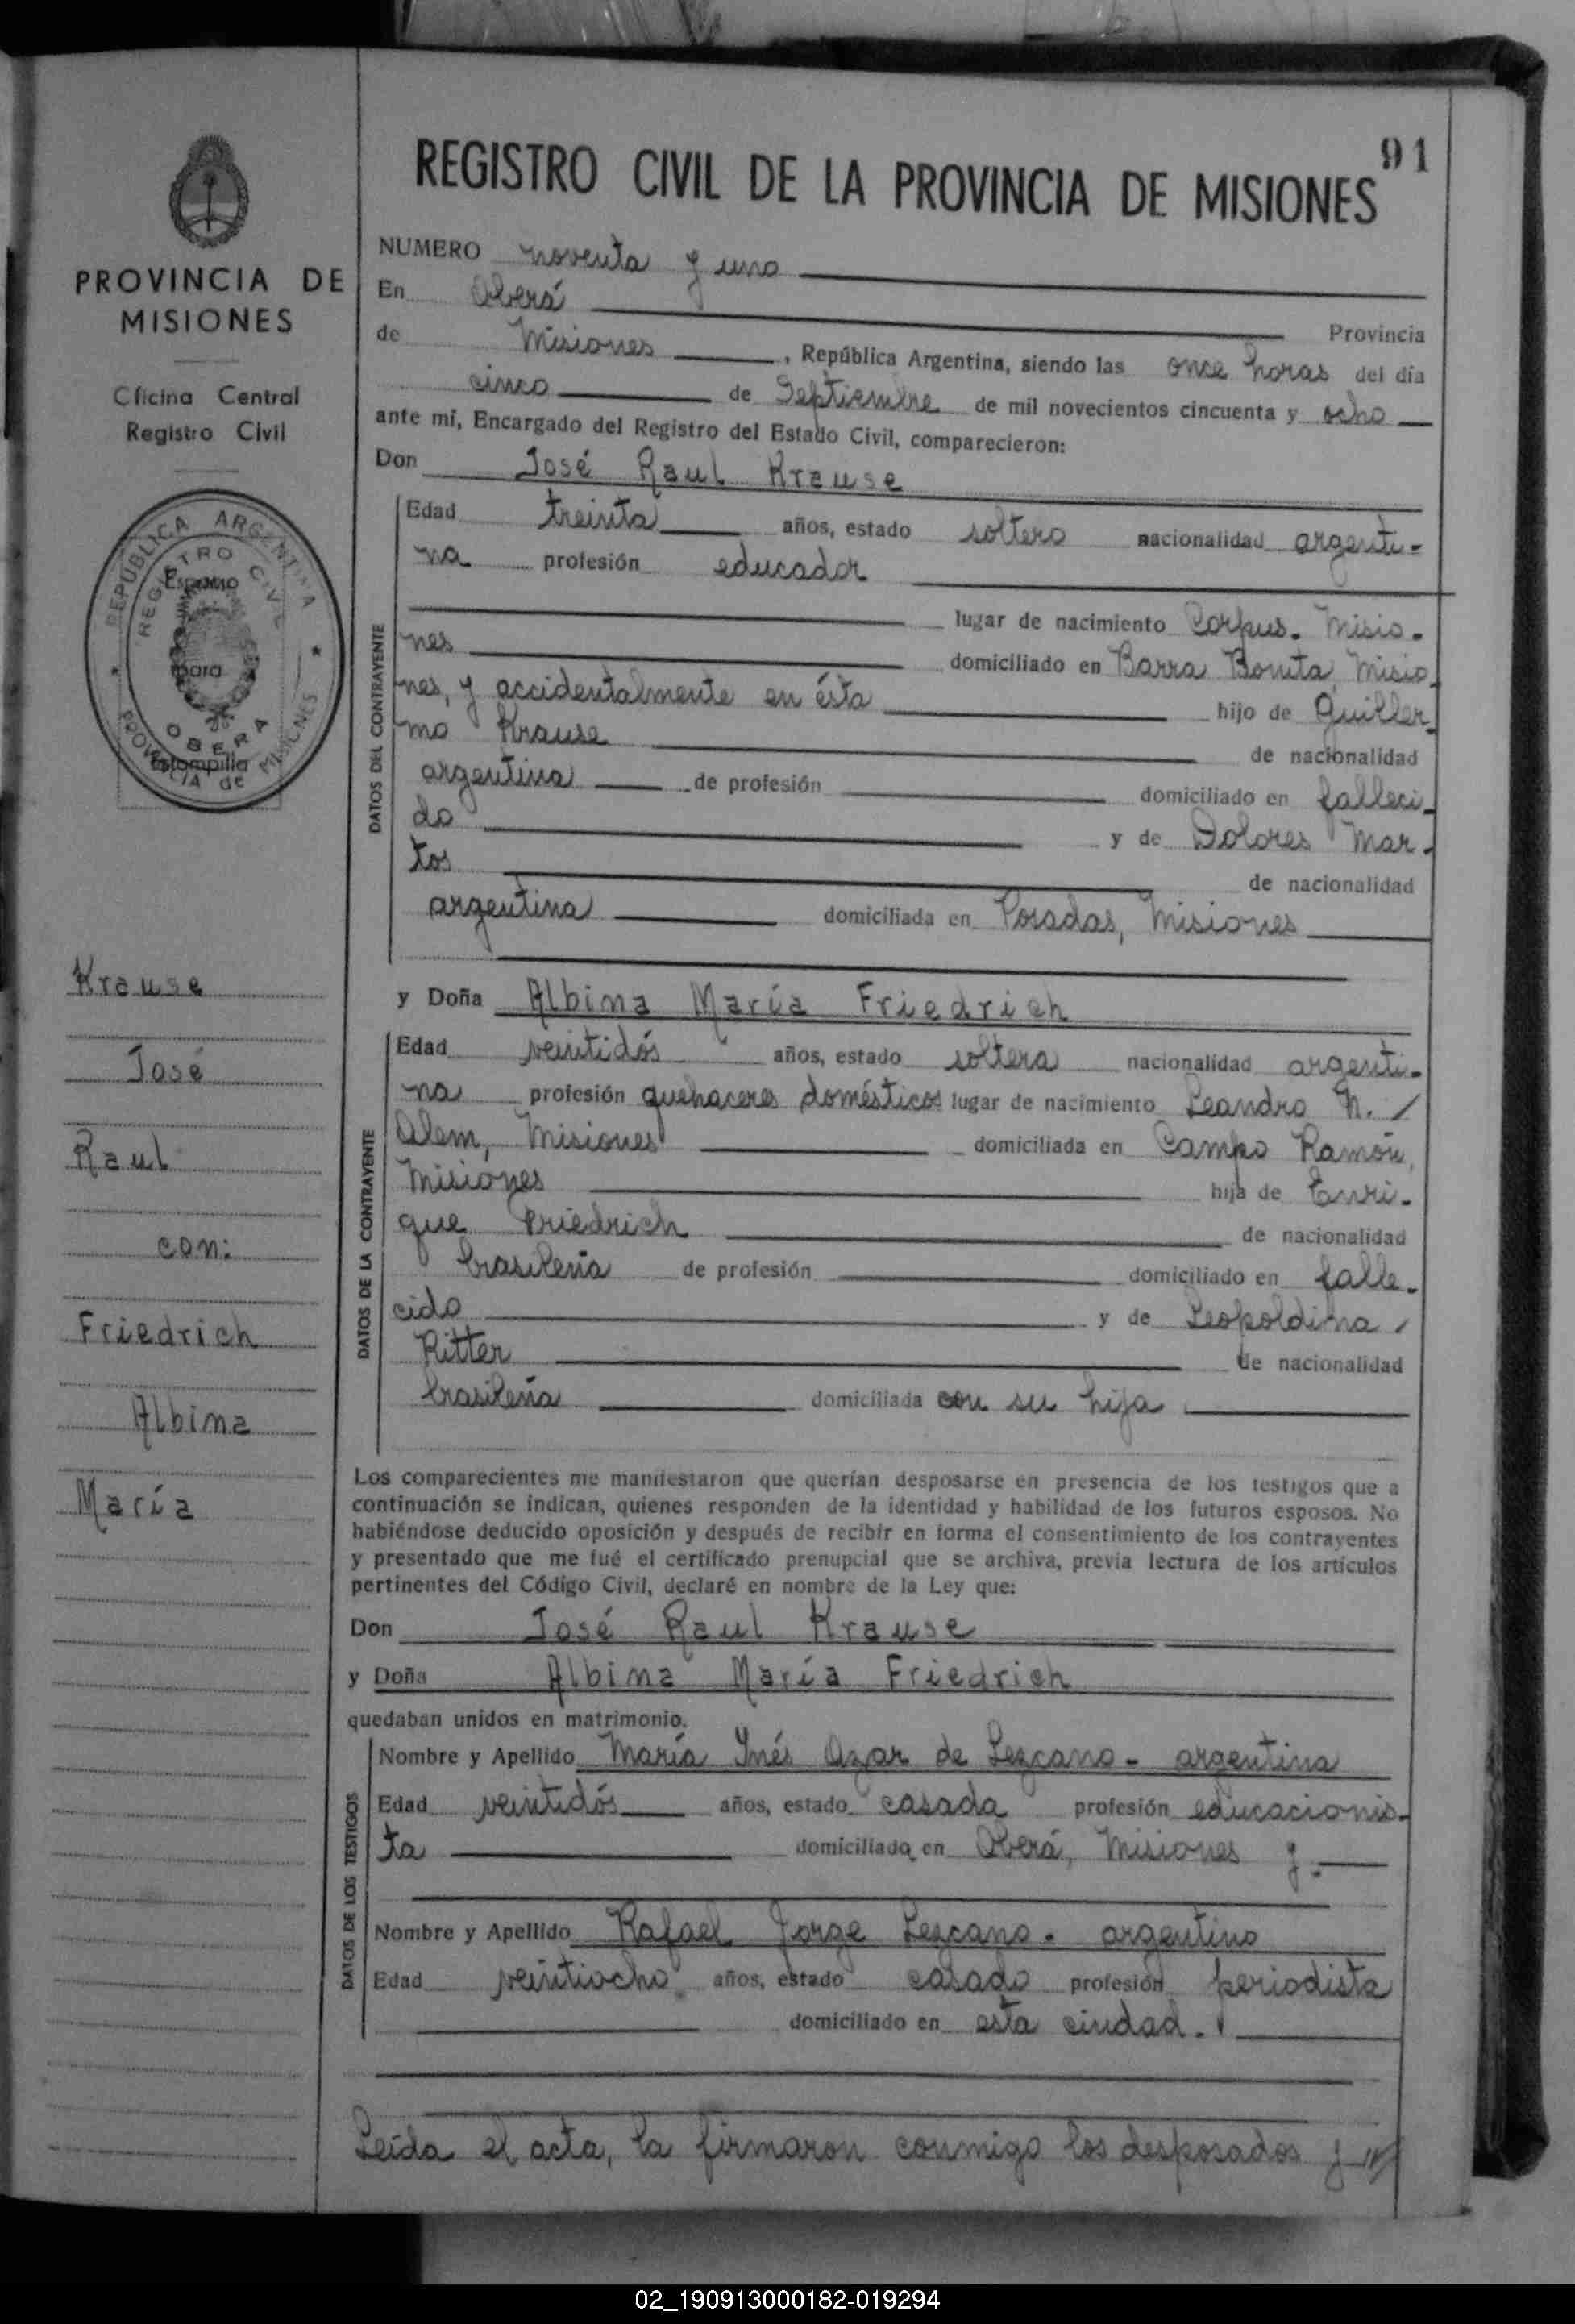 91
REGISTRO CIVIL DE LA PROVINCIA DE MISIONES
PROVINCIA DE
MISIONES
Oficina Central
Registro Civil
REPÚBLICA ARGENTINA
REGISTRO CIVIL
Espacio
para
OBERA
estampilla
PROVINCIA de MISIONES
Krause
José
Raul
con:
Friedrich
Albina
María
NUMERO noventa y uno
En Oberá Provincia
de Misiones, República Argentina, siendo las once horas del día
cinco de Septiembre de mil novecientos cincuenta y ocho
ante mí, Encargado del Registro del Estado Civil, comparecieron:
Don José Raul Krause
DATOS DEL CONTRAYENTE
Edad treinta años, estado soltero nacionalidad argenti-
na profesión educador
lugar de nacimiento Corpus. Misio-
nes domiciliado en Barra Bonita, Misio-
nes, y accidentalmente en ésta hijo de Guiller-
mo Krause de nacionalidad
argentina de profesión domiciliado en falleci-
do y de Dolores Mar-
tos de nacionalidad
argentina domiciliada en Posadas, Misiones
y Doña Albina María Friedrich
DATOS DE LA CONTRAYENTE
Edad veintidós años, estado soltera nacionalidad argenti-
na profesión quehaceres domésticos lugar de nacimiento Leandro N. /
Alem, Misiones domiciliada en Campo Ramón,
Misiones hija de Enri-
que Friedrich de nacionalidad
brasileña de profesión domiciliado en falle-
cido y de Leopoldina /
Ritter de nacionalidad
brasileña domiciliada con su hija
Los comparecientes me manifestaron que querían desposarse en presencia de los testigos que a
continuación se indican, quienes responden de la identidad y habilidad de los futuros esposos. No
habiéndose deducido oposición y después de recibir en forma el consentimiento de los contrayentes
y presentado que me fué el certificado prenupcial que se archiva, previa lectura de los artículos
pertinentes del Código Civil, declaré en nombre de la Ley que:
Don José Raul Krause
y Doña Albina María Friedrich
quedaban unidos en matrimonio.
DATOS DE LOS TESTIGOS
Nombre y Apellido María Inés Azar de Lezcano - argentina
Edad veintidós años, estado casada profesión educacionis-
ta domiciliado en Oberá, Misiones y.-
Nombre y Apellido Rafael Jorge Lezcano. argentino
Edad veintiocho años, estado casado profesión periodista
domiciliado en esta ciudad.
Leída el acta, la firmaron conmigo los desposados y
02_190913000182-019294